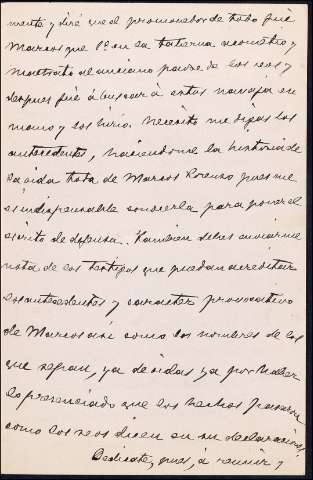 mente y diré que el promovedor de todo fué
Marcos que 1º en la taberna acometió y
maltrató al anciano padre de los reos y
despues fué á buscar á estos navaja en
mano y los hirió. Necesito me digas los
antecedentes, haciendome la historia de
la vida toda de Marcos Lorenzo pues me
es indispensable conocerla para poner el
escrito de defensa. Tambien debes enviarme
nota de los testigos que puedan acreditar
los antecedentes y caracter provocativo
de Marcos asi como los nombres de los
que sepan, ya de oidas ya por haber
lo presenciado que los hechos pasaron
como los reos dicen en su declaracion.
Dedicate, pues, á reunir,